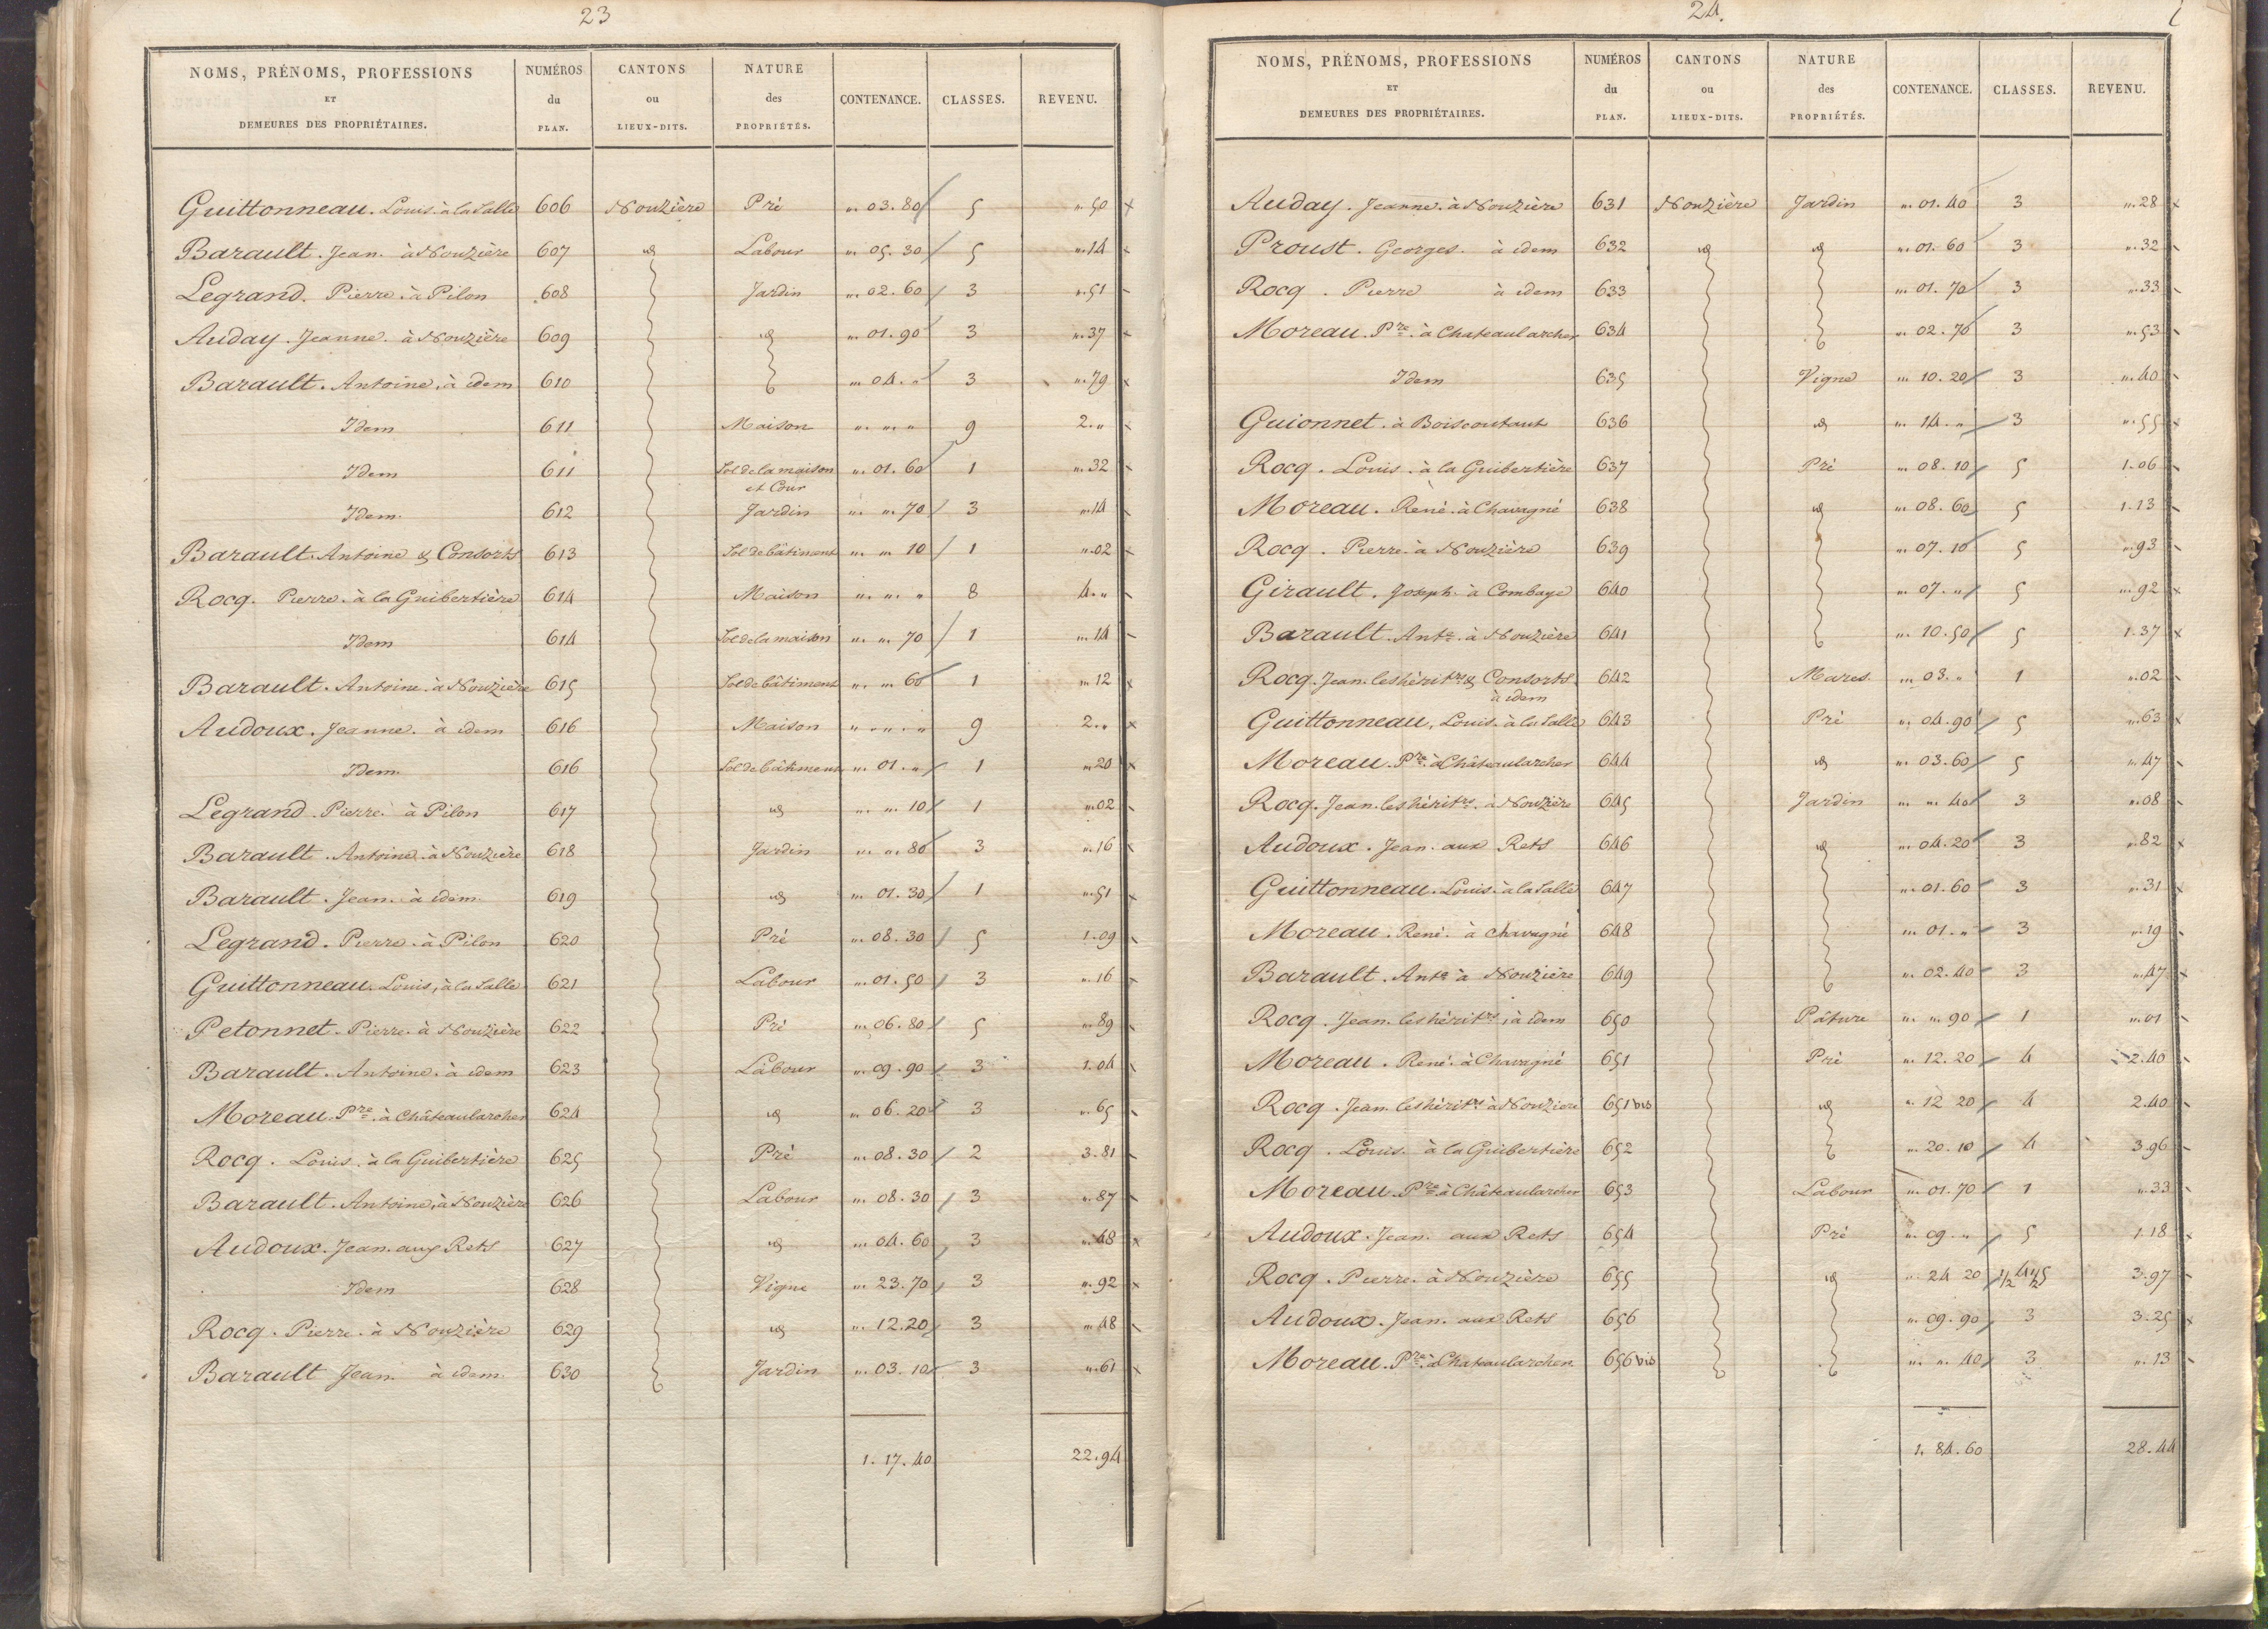 23
NOMS, PRÉNOMS, PROFESSIONS ET DEMEURES DES PROPRIÉTAIRES. NUMÉROS du PLAN. CANTONS ou LIEUX-DITS. NATURE des PROPRIÉTÉS. CONTENANCE. CLASSES. REVENU.
Guittonneau. Louis. à la Salle 606 Nouzière Pré ". 03. 80 5 ". 50
Barault. Jean. à Nouzière 607 id Labour ". 05. 30 5 ". 14
Legrand. Pierre. à Pilon 608 Jardin ". 02. 60 3 ". 51
Auday. Jeanne. à Nouzière 609 id ". 01. 90 3 ". 37
Barault. Antoine. à idem 610 ". 04. " 3 ". 79
Idem 611 Maison ". ". " 9 2. "
Idem 611 Sol de la maison et Cour ". 01. 60 1 ". 32
Idem. 612 Jardin ". ". 70 3 ". 14
Barault. Antoine & Consorts 613 Sol de bâtiment ". ". 10 1 ". 02
Rocq. Pierre. à la Guibertière 614 Maison ". ". " 8 4. "
Idem 614 Sol de la maison ". ". 70 1 ". 14
Barault. Antoine. à Nouzière 615 Sol de bâtiment ". ". 60 1 ". 12
Audoux. Jeanne. à idem 616 Maison ". ". " 9 2. "
Idem. 616 Sol de bâtiment ". 01. " 1 ". 20
Legrand. Pierre. à Pilon 617 id ". ". 10 1 ". 02
Barault. Antoine. à Nouzière 618 Jardin ". ". 80 3 ". 16
Barault. Jean. à idem 619 id ". 01. 30 1 ". 51
Legrand. Pierre. à Pilon 620 Pré ". 08. 30 5 1. 09
Guittonneau. Louis, à la Salle 621 Labour ". 01. 50 3 ". 16
Petonnet. Pierre. à Nouzière 622 Pré ". 06. 80 5 ". 89
Barault. Antoine. à idem 623 Labour ". 09. 90 3 1. 04
Moreau. Pre. à Châteaularcher 624 id ". 06. 20 3 ". 65
Rocq. Louis. à la Guibertière 625 Pré ". 08. 30 2 3. 81
Barault. Antoine, à Nouzière 626 Labour ". 08. 30 3 ". 87
Audoux. Jean. aux Rets 627 id ". 04. 60 3 ". 48
Idem 628 Vigne ". 23. 70 3 ". 92
Rocq. Pierre. à Nouzière 629 id ". 12. 20 3 ". 48
Barault Jean. à idem. 630 Jardin ". 03. 10 3 ". 61
1. 17. 40 22. 94
24.
NOMS, PRÉNOMS, PROFESSIONS ET DEMEURES DES PROPRIÉTAIRES. NUMÉROS du PLAN. CANTONS ou LIEUX-DITS. NATURE des PROPRIÉTÉS. CONTENANCE. CLASSES. REVENU.
Auday. Jeanne. à Nouzière 631 Nouzière Jardin ". 01. 40 3 ". 28
Proust. Georges. à idem 632 id id ". 01. 60 3 ". 32
Rocq. Pierre à idem 633 ". 01. 70 3 ". 33
Moreau. Pre. à Chateaularcher 634 ". 02. 70 3 ". 53
Idem 635 Vigne ". 10. 20 3 ". 40
Guionnet. à Boiscoutant 636 id ". 14. " 3 ". 55
Rocq. Louis. à la Guibertière 637 Pré ". 08. 10 5 1. 06
Moreau. René. à Chavagné 638 id ". 08. 60 5 1. 13
Rocq. Pierre. à Nouzière 639 ". 07. 10 5 ". 93
Girault. Joseph. à Combaye 640 ". 07. " 5 ". 92
Barault. Ante. à Nouzière 641 ". 10. 50 5 1. 37
Rocq. Jean. les héritrs & Consorts. à idem 642 Mares. ". 03. " 1 ". 02
Guittonneau, Louis. à la Salle 643 Pré ". 04. 90 5 ". 63
Moreau. Pre. à Châteaularcher 644 id ". 03. 60 5 ". 47
Rocq. Jean. les héritrs. à Nouzière 645 Jardin ". ". 40 3 ". 08
Audoux. Jean. aux Rets 646 id ". 04. 20 3 ". 82
Guittonneau. Louis. à la Salle 647 ". 01. 60 3 ". 31
Moreau. René. à chavagné 648 ". 01. " 3 ". 19
Barault. Ante à Nouzière 649 ". 02. 40 3 ". 47
Rocq. Jean. les héritrs, à idem 650 Pâture ". ". 90 1 ". 01
Moreau. René. à Chavagné 651 Pré ". 12. 20 4 2. 40
Rocq. Jean. les héritrs à Nouzière 651 bis id ". 12 20 4 2. 40
Rocq. Louis. à la Guibertière 652 ". 20. 10 4 3. 96
Moreau. Pre. à Châteaularcher 653 Labour ". 01. 70 1 ". 33
Audoux. Jean. aux Rets 654 Pré ". 09. " 5 1. 18
Rocq. Pierre. à Nouzière 655 id ". 24 20 1/2 4 1/2 5 3. 97
Audoux. Jean. aux Rets 656 ". 09. 90 3 3. 25
Moreau. Pre. à Chateaularcher. 656 bis ". ". 40 3 ". 13
1. 84. 60 28. 44